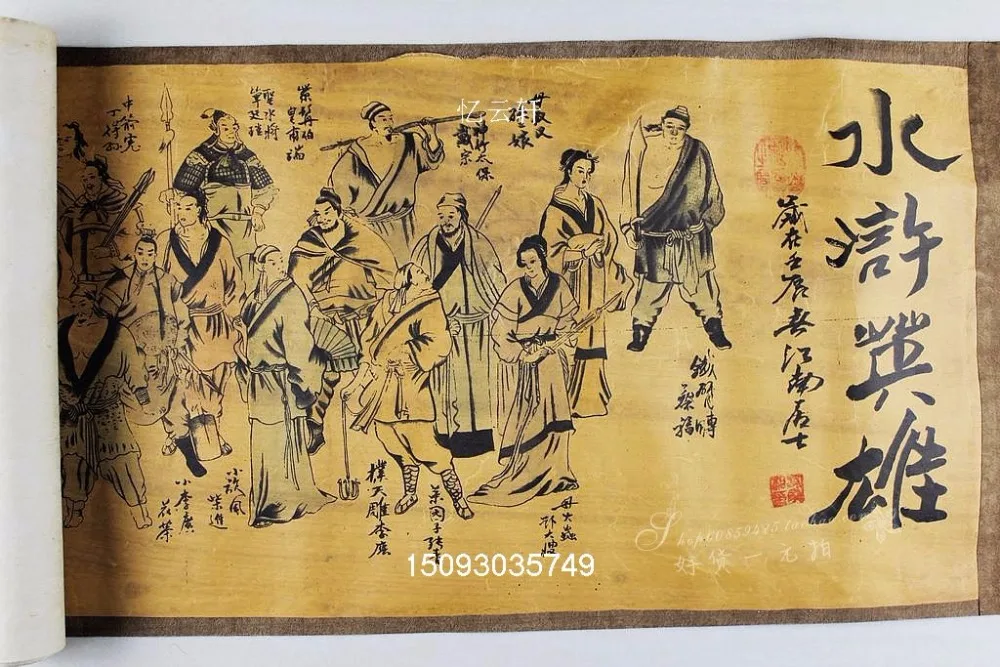 水滸英雄
歲在壬辰春江南居士
鐵臂膊
蔡福
母夜叉
孫二娘
神行太保
戴宗
紫髯伯
皇甫端
聖水將
單廷珪
中箭虎
丁得孫
母大蟲
顧大嫂
菜園子張青
撲天雕李應
小旋風
柴進
小李廣
花榮
忆云轩
15093035749
好货一元拍